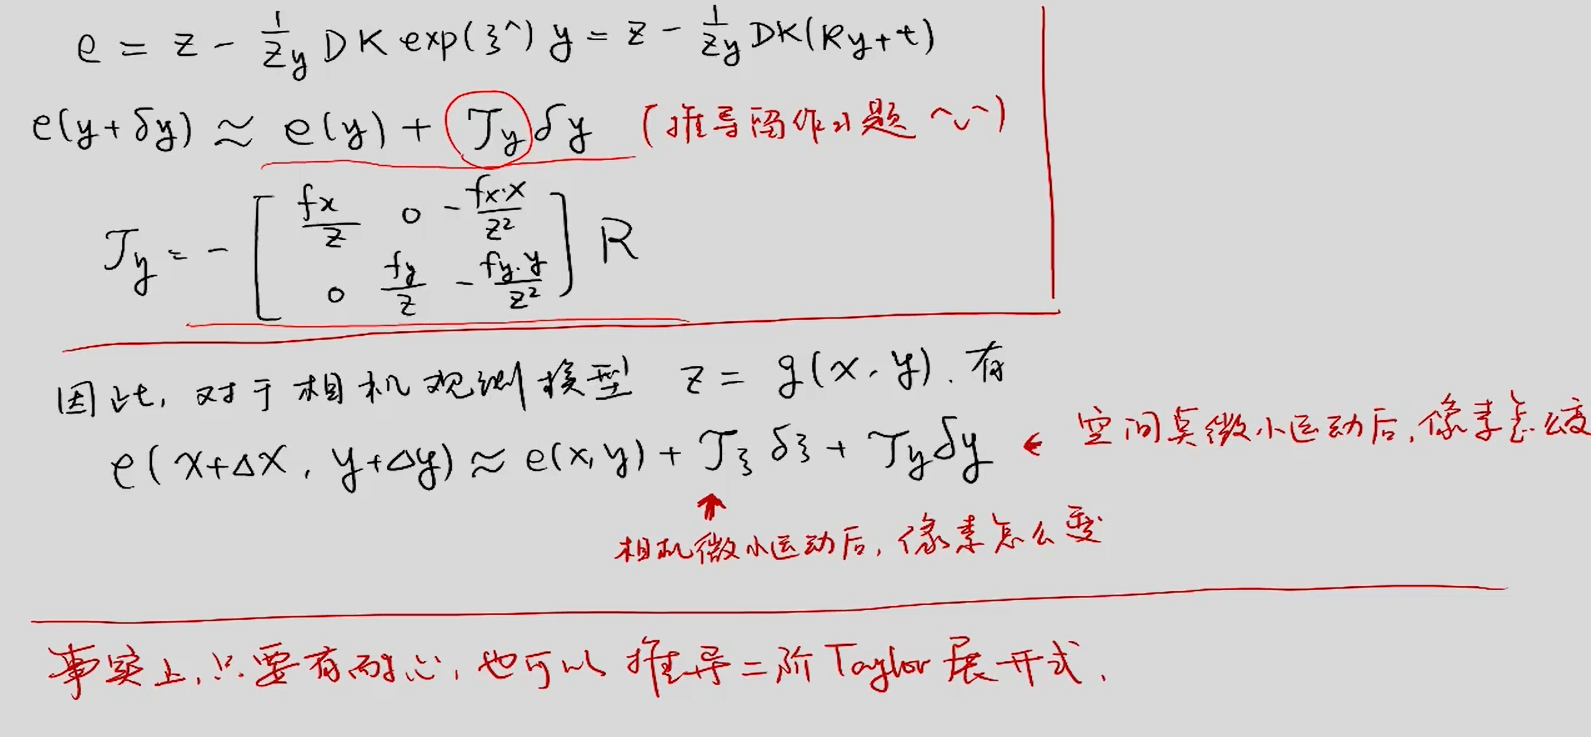 e = z - 1/z_y DK exp(ξ^) y = z - 1/z_y DK(Ry+t)
e(y+δy) ≈ e(y) + J_y δy (推导留作小题 ^◡^)
J_y = - [ fx/z 0 -fx·x/z² ; 0 fy/z -fy·y/z² ] R
因此, 对于相机观测模型 z = g(x, y). 有
e(x+Δx, y+Δy) ≈ e(x,y) + J_ξ δξ + J_y δy ← 空间点微小运动后,像素怎么变
↑
相机微小运动后, 像素怎么变
事实上, 只要有耐心, 也可以推导二阶Taylor展开式.